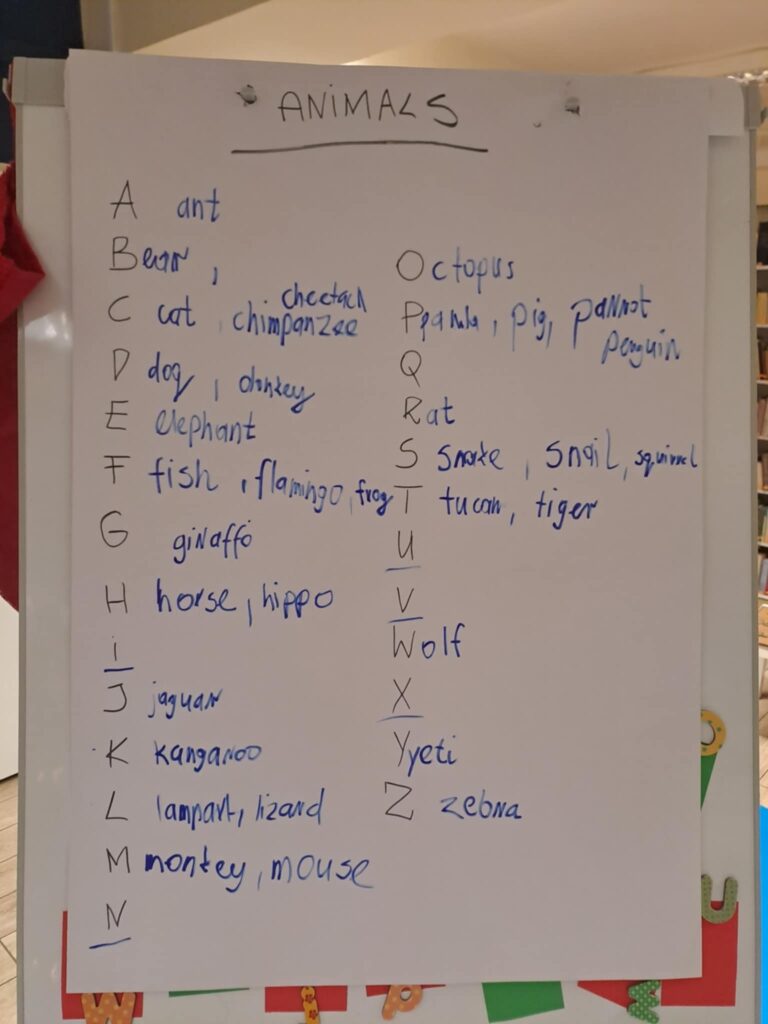 ANIMALS
A ant
Bear,
C cat, chimpanzee cheetach
D dog, donkey
E elephant
F fish, flamingo, frog
G giraffe
H horse, hippo
i
J jaguar
K kangaroo
L lampart, lizard
M monkey, mouse
N
Octopus
P panda, pig, parrot
penguin
Q
Rat
S snake, snail, squirrel
T tucan, tiger
U
V
Wolf
X
Y yeti
Z zebra